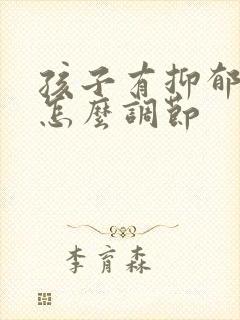 孩子有抑郁
怎麼調節
李育森